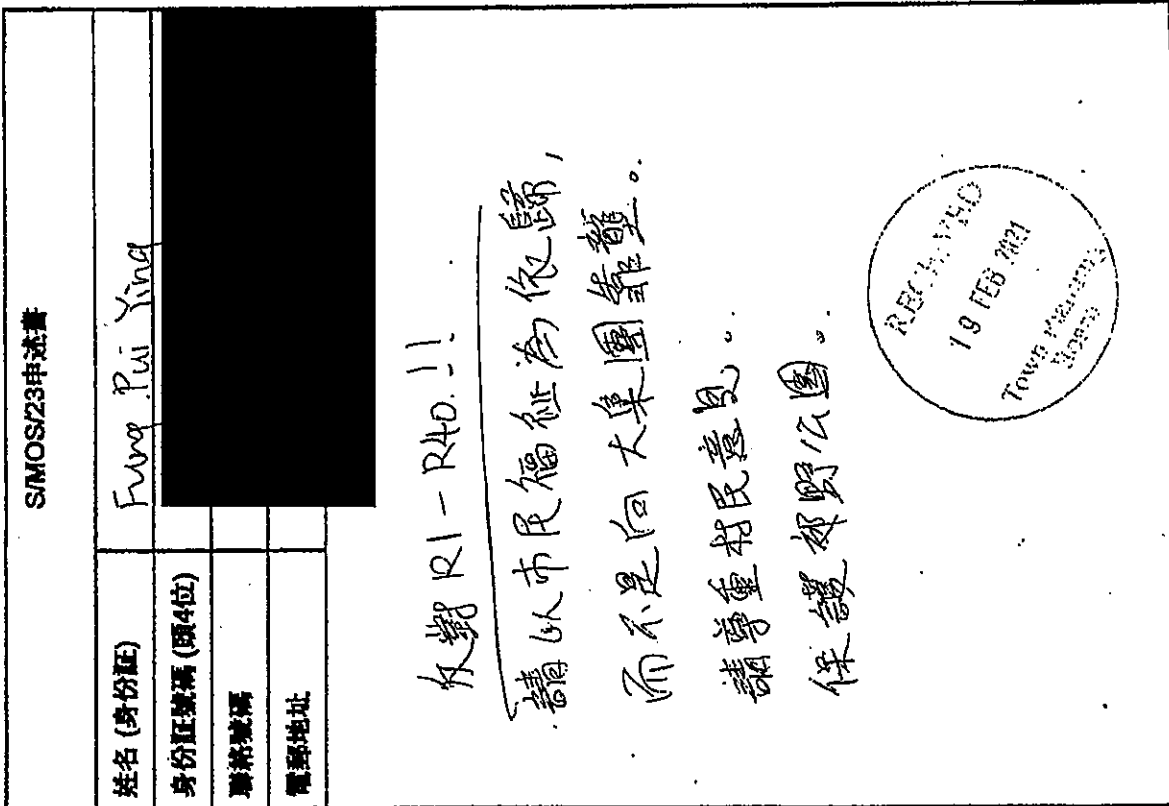 S/MOS/23申述書
姓名 (身份証) Fung Pui Ying
身份証號碼 (頭4位)
聯絡號碼
電郵地址
反對 R1-R40.!!
請以市民福祉為依歸,
而不是向大集團靠攏。
請尊重村民意見。
保護郊野公園。
RECEIVED
19 FEB 2021
Town Planning
Board